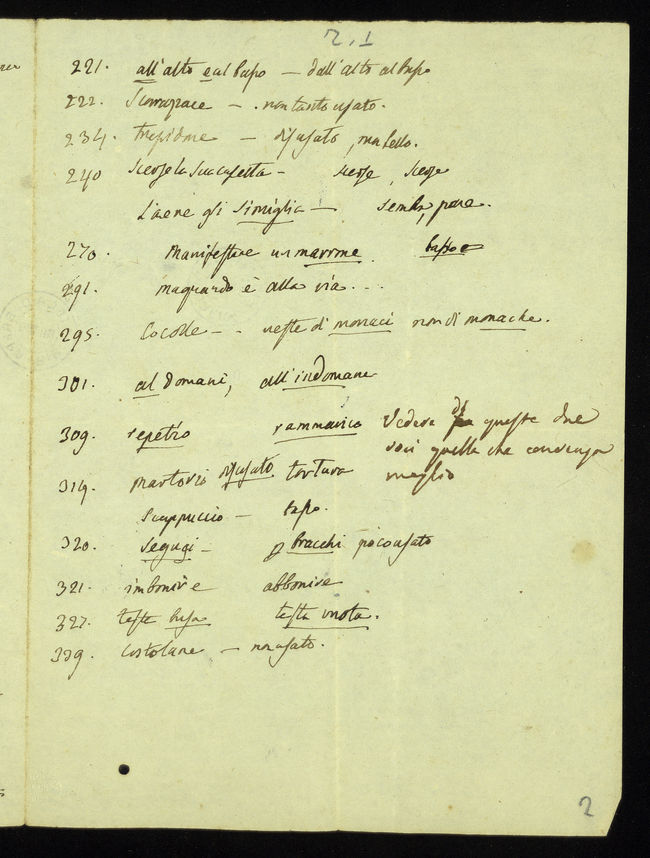 T. 2
221. all'alto e al basso — dall'alto al basso
222. Scomapace — . non tanto usato.
234. trepidone — disusato, ma bello.
240 scerse la — scerse, scerse
L'aene gli simiglia — sembra, pare.
270. Manifestare un marrone. basso
291. maguardo è alla via . . .
295. Cocolle — - veste di monaci non di monache.
301. al domani, all'indomane
309. repetio rammarico Vedere di queste due
voci quella che convenga
meglio
319. Martorio disusato tortura
Scappuccio — sasso.
320. Segugi — p bracchi poco usato
321. imbonire abbonire
327. teste busa testa vuota.
339. Costolane — non usato.
2